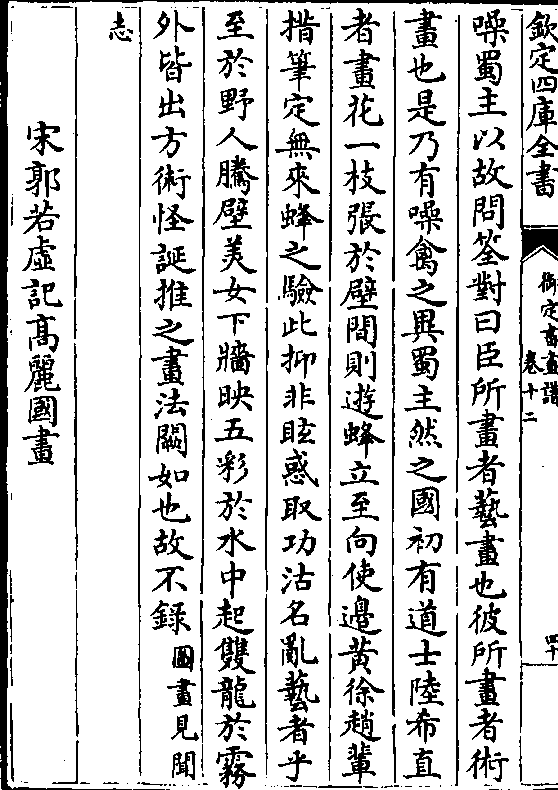 欽定四庫全書
御定書畫譜
卷十二
四十
噪蜀主以故問筌對曰臣所畫者藝畫也彼所畫者術
畫也是乃有噪禽之異蜀主然之國初有道士陸希真
者畫花一枝張於壁間則遊蜂立至向使邊黃徐趙輩
措筆定無來蜂之驗此抑非眩惑取功沽名亂藝者乎
至於野人騰壁美女下牆映五彩於水中起雙龍於霧
外皆出方術怪誕推之畫法闕如也故不錄圖畫見聞
志
宋郭若虛記高麗國畫